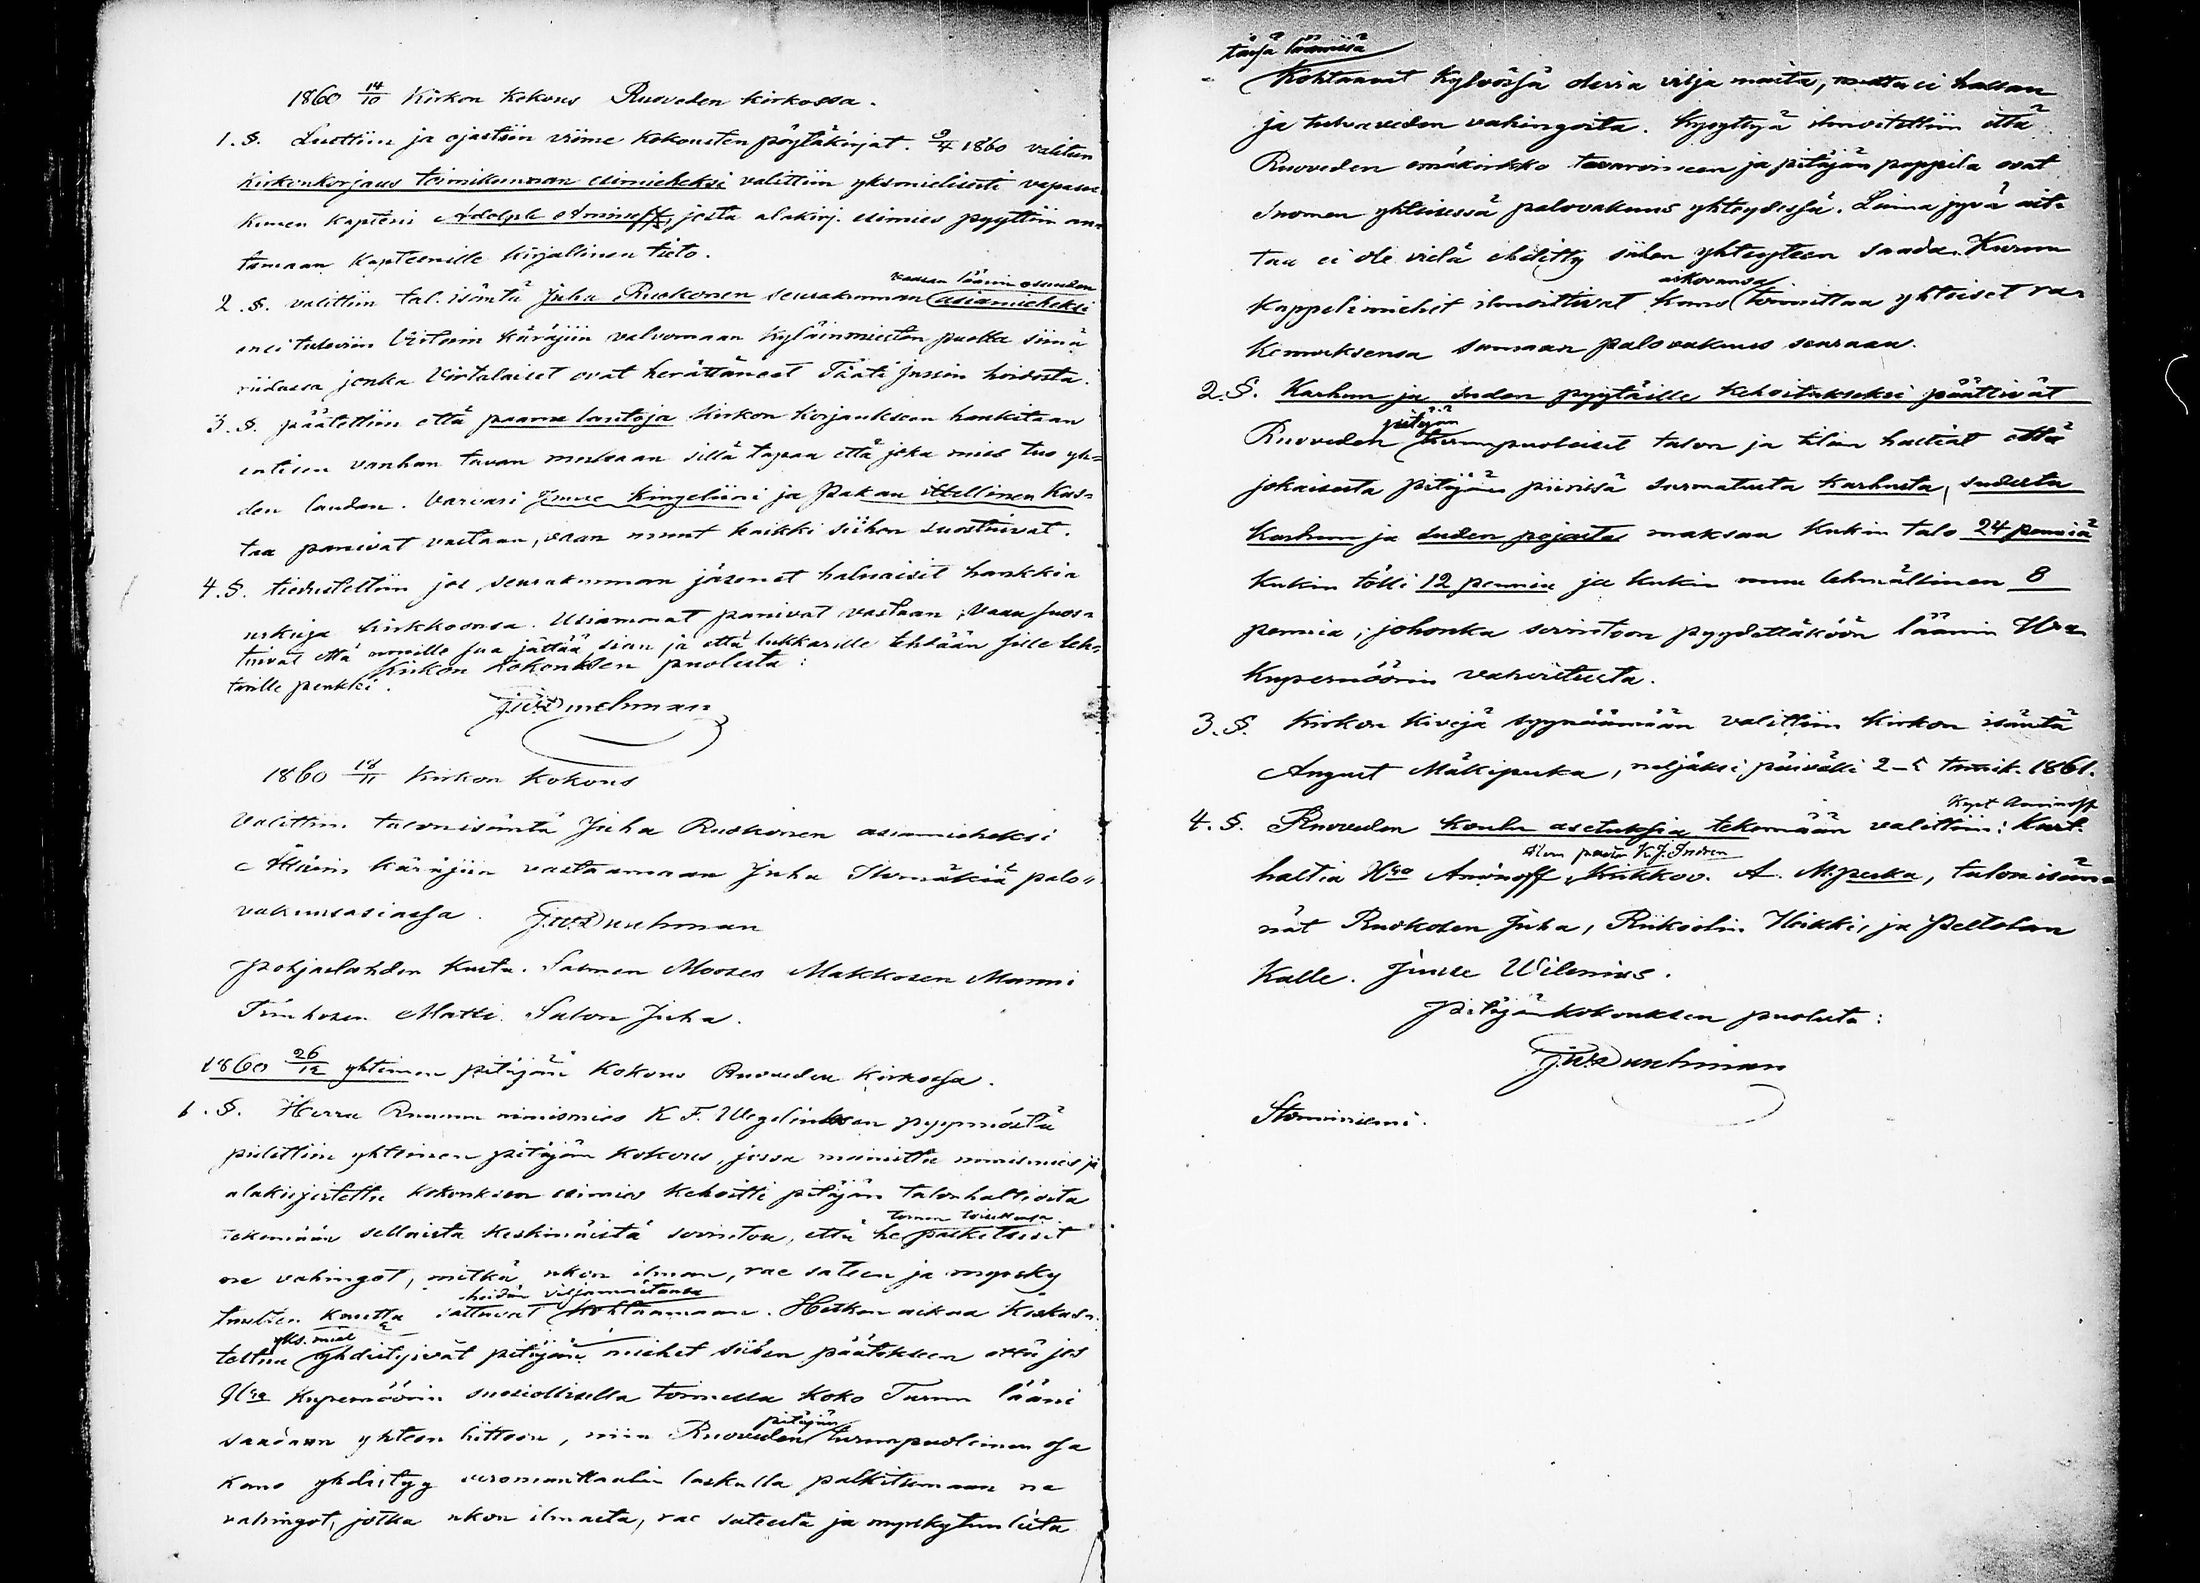 1860 14/10 Kirkon kokous Ruoveden kirkossa.
1. §. Luettiin ja ojastiin viime kokousten pöytäkirjat. 9/4 1860 valitun
kirkonkorjaus toimikunnan esimieheksi valittiin yksmielisesti vapasu-
kunen kapteni Adolph Aminoff, josta alakirj. esimies pyyttiin an-
tamaan kapteenille kirjallinen tieto.
vaasan läänin osuuden
2. §. valittiin tal. isäntä Juha Ruokonen seurakunnan asiamieheksi
ensi tuleviin Virtain käräjiin valvomaan kyläinmiesten puolta siinä
riidassa jonka Virtalaiset ovat herättäneet Tääti Jussin hoidosta.
3. §. päätettiin että paanu lautoja kirkon korjaukseen hankitaan
entisen vanhan tavan mukaan sillä tapaa että joka mies tuo yh-
den laudan. Varvari Jusse Kingeliini ja Pakan itellinen Kus-
taa panivat vastaan, vaan muut kaikki siihen suostuivat.
4. §. tiedusteltiin jos seurakunnan jäsenet haluaisit hankkia
urkuja kirkkoonsa. Usiammat panivat vastaan; vaan suos-
tuivat että nouville sua jättää sian ja että lukkarille tehdään sille leh-
terille penkki.
Kirkon kokouksen puolesta:
J.W. Durchman
1860 18/11 Kirkon kokous
Valittiin talonisäntä Juha Ruokonen asiamieheksi
käräjiin vastaamaan Juha palo-
vakuusasiassa. J.W. Durchman
Pohjaslahden Kusta. Salmen Mooses Makkosen Manni
Timhosen Matti. Salon Juha.
1860 26/12 yhteinen pitäjän kokous Ruoveden kirkossa.
1. §. Herra Ruunun nimismies K F. Wegeliuksen pyynnöstä
pidettiin yhteinen pitäjän kokous, jossa mainittu nimismies ja
alakirjoitettu kokouksen esimies kehoitti pitäjän talonhaltioita
toinen toisellensa
tekemään sellaista keskinäistä sovintoa, että he palkitsisit
ne vahingot, mitkä ukon ilman, rae sateen ja myrsky
heidän viljamaitansa
tuulten kautta sattuvat kohtaamaan. Hetken aikaa keskus-
yks. miel
teltua yhdistyivät pitäjän miehet siihen päätökseen että jos
Hra Kupernöörin suosiollisella toimella koko Turun lääni
pitäjän
saadaan yhteen liittoon, niin Ruoveden turunpuolinen osa
kans yhdistyy veromanttaalin laskulla palkitsemaan ne
vahingot, jotka ukon ilmasta, rae sateesta ja myrskytuulista
täsjä läänissä
kohtaavat kylvössä olevia vilja maita, mutta ei hallan
ja tulvaveden vahingoita. Kysyttyä ilmoitettiin että
Ruoveden emäkirkko tavaroineen ja pitäjän pappila ovat
Suomen yhteisessä palovakuus yhteydessä. Laina jyvä ait-
taa ei ole vielä ehditty siihen yhteyteen saada. Kurun
aikovansa
kappelimiehet ilmoittivat kans toimittaa yhteiset ra-
kennuksensa samaan palovakuus seuraan.
2. §. Karhun ja suden pyytäille kehoitukseksi päättivät
pitäjän
Ruoveden turunpuoleiset talon ja tilan haltiat että
jokaisesta pitäjän piirissä surmatusta karhusta, sudesta
karhun ja suden pojasta maksaa kukin talo 24 penniä
kukin tölli 12 penniä ja kukin muu lehmällinen 8
penniä; johonka sovintoon pyydettäköön läänin Hra
Kupernöörin vahvistusta.
3. §. Kirkon kivejä syynäämään valittiin kirkon isäntä
August Mäkipeska, neljäksi päiväksi 2-5 tammik. 1861.
Kapt Aminoff
4. §. Ruoveden koulu asetuksia tekemään valittiin: Kart.
haltia Hra Aminoff, Kirkkov. A. M.peska, talon isän-
nät Ruokosen Juha, Riikoolin Heikki, ja Peltolan
Kalle. Jusse Wilenius.
Pitäjänkokouksen puolesta:
J.W. Durchman
Storminiemi.